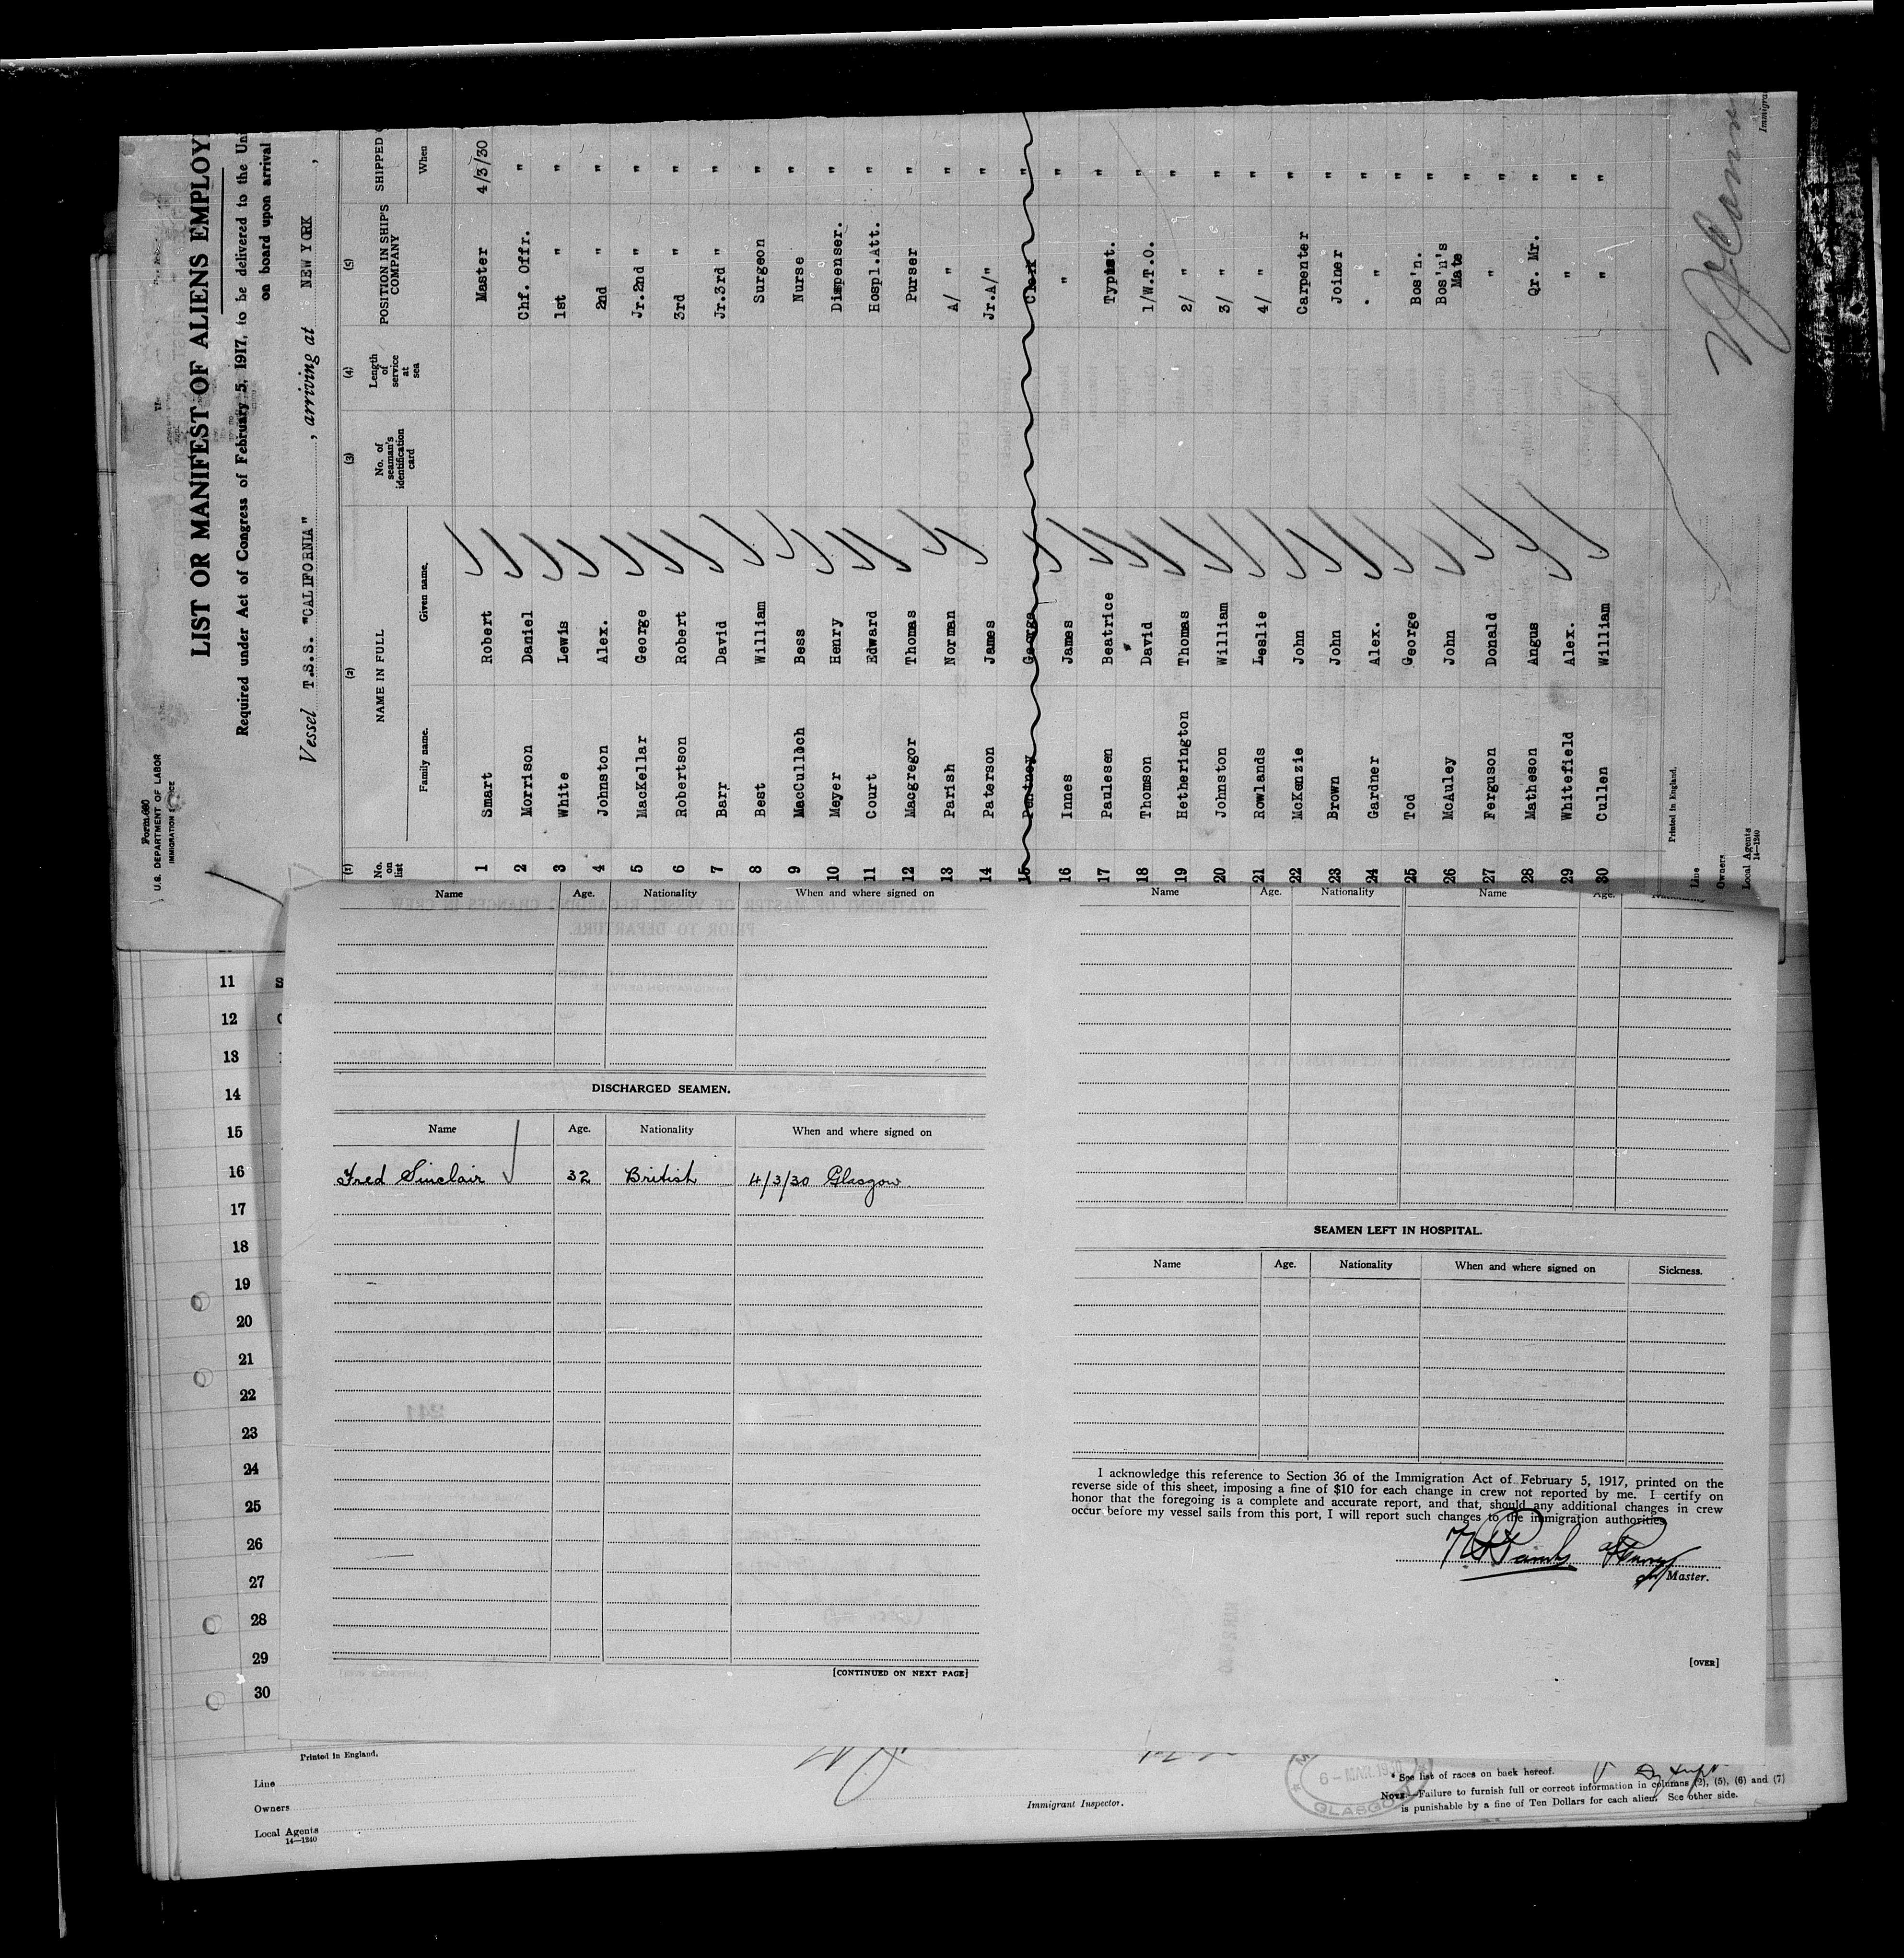 Form 680
U.S. DEPARTMENT OF LABOR
IMMIGRATION SERVICE
LIST OR MANIFEST OF ALIENS EMPLOY
Required under Act of Congress of February 5, 1917, to be delivered to the Un
on board upon arrival
Vessel T.S.S. "CALIFORNIA", arriving at NEW YORK,
(1) (2) (3) (4) (5)
No. on list NAME IN FULL No. of seaman's identification card Length of service at sea POSITION IN SHIP'S COMPANY SHIPPED
Family name. Given name. When
1 Smart Robert Master 4/3/30
2 Morrison Daniel Chf. Offr. "
3 White Lewis 1st " "
4 Johnston Alex. 2nd " "
5 MacKellar George Jr.2nd " "
6 Robertson Robert 3rd " "
7 Barr David Jr.3rd " "
8 Best William Surgeon "
9 MacCulloch Bess Nurse "
10 Meyer Henry Dispenser. "
11 Court Edward Hospl.Att. "
12 Macgregor Thomas Purser "
13 Parish Norman A/ " "
14 Paterson James Jr.A/" "
15 George Clerk "
16 Innes James " "
17 Paulssen Beatrice Typist. "
18 Thomson David 1/W.T.O. "
19 Hetherington Thomas 2/ " "
20 Johnston William 3/ " "
21 Rowlands Leslie 4/ " "
22 McKenzie John Carpenter "
23 Brown John Joiner "
24 Gardner Alex. . " "
25 Tod George Bos'n. "
26 McAuley John Bos'n's Mate "
27 Ferguson Donald " "
28 Matheson Angus Qr. Mr. "
29 Whitefield Alex. " "
30 Cullen William " "
Printed in England.
Line
Owners
Local Agents
14—1240
Immigra
Name Age. Nationality When and where signed on
DISCHARGED SEAMEN.
Name Age. Nationality When and where signed on
Fred Sinclair 32 British 4/3/30 Glasgow.
[CONTINUED ON NEXT PAGE]
Name Age. Nationality Name Age. Nationality
SEAMEN LEFT IN HOSPITAL.
Name Age. Nationality When and where signed on Sickness.
I acknowledge this reference to Section 36 of the Immigration Act of February 5, 1917, printed on the
reverse side of this sheet, imposing a fine of $10 for each change in crew not reported by me. I certify on
honor that the foregoing is a complete and accurate report, and that, should any additional changes in crew
occur before my vessel sails from this port, I will report such changes to the immigration authorities.
Master.
[OVER]
11
12
13
14
15
16
17
18
19
20
21
22
23
24
25
26
27
28
29
30
Printed in England.
Line
Owners
Local Agents
14—1240
Immigrant Inspector.
6 - MAR. 19
GLASGOW
* See list of races on back hereof.
NOTE.—Failure to furnish full or correct information in columns (2), (5), (6) and (7)
is punishable by a fine of Ten Dollars for each alien. See other side.